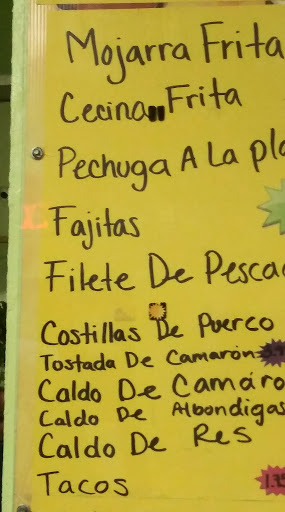 Mojarra Frita
Cecina Frita
Pechuga A La pla
Fajitas
Filete De Pesca
Costillas De Puerco
Tostada De Camarón
Caldo De Camaro
Caldo De Albondigas
Caldo De Res
Tacos